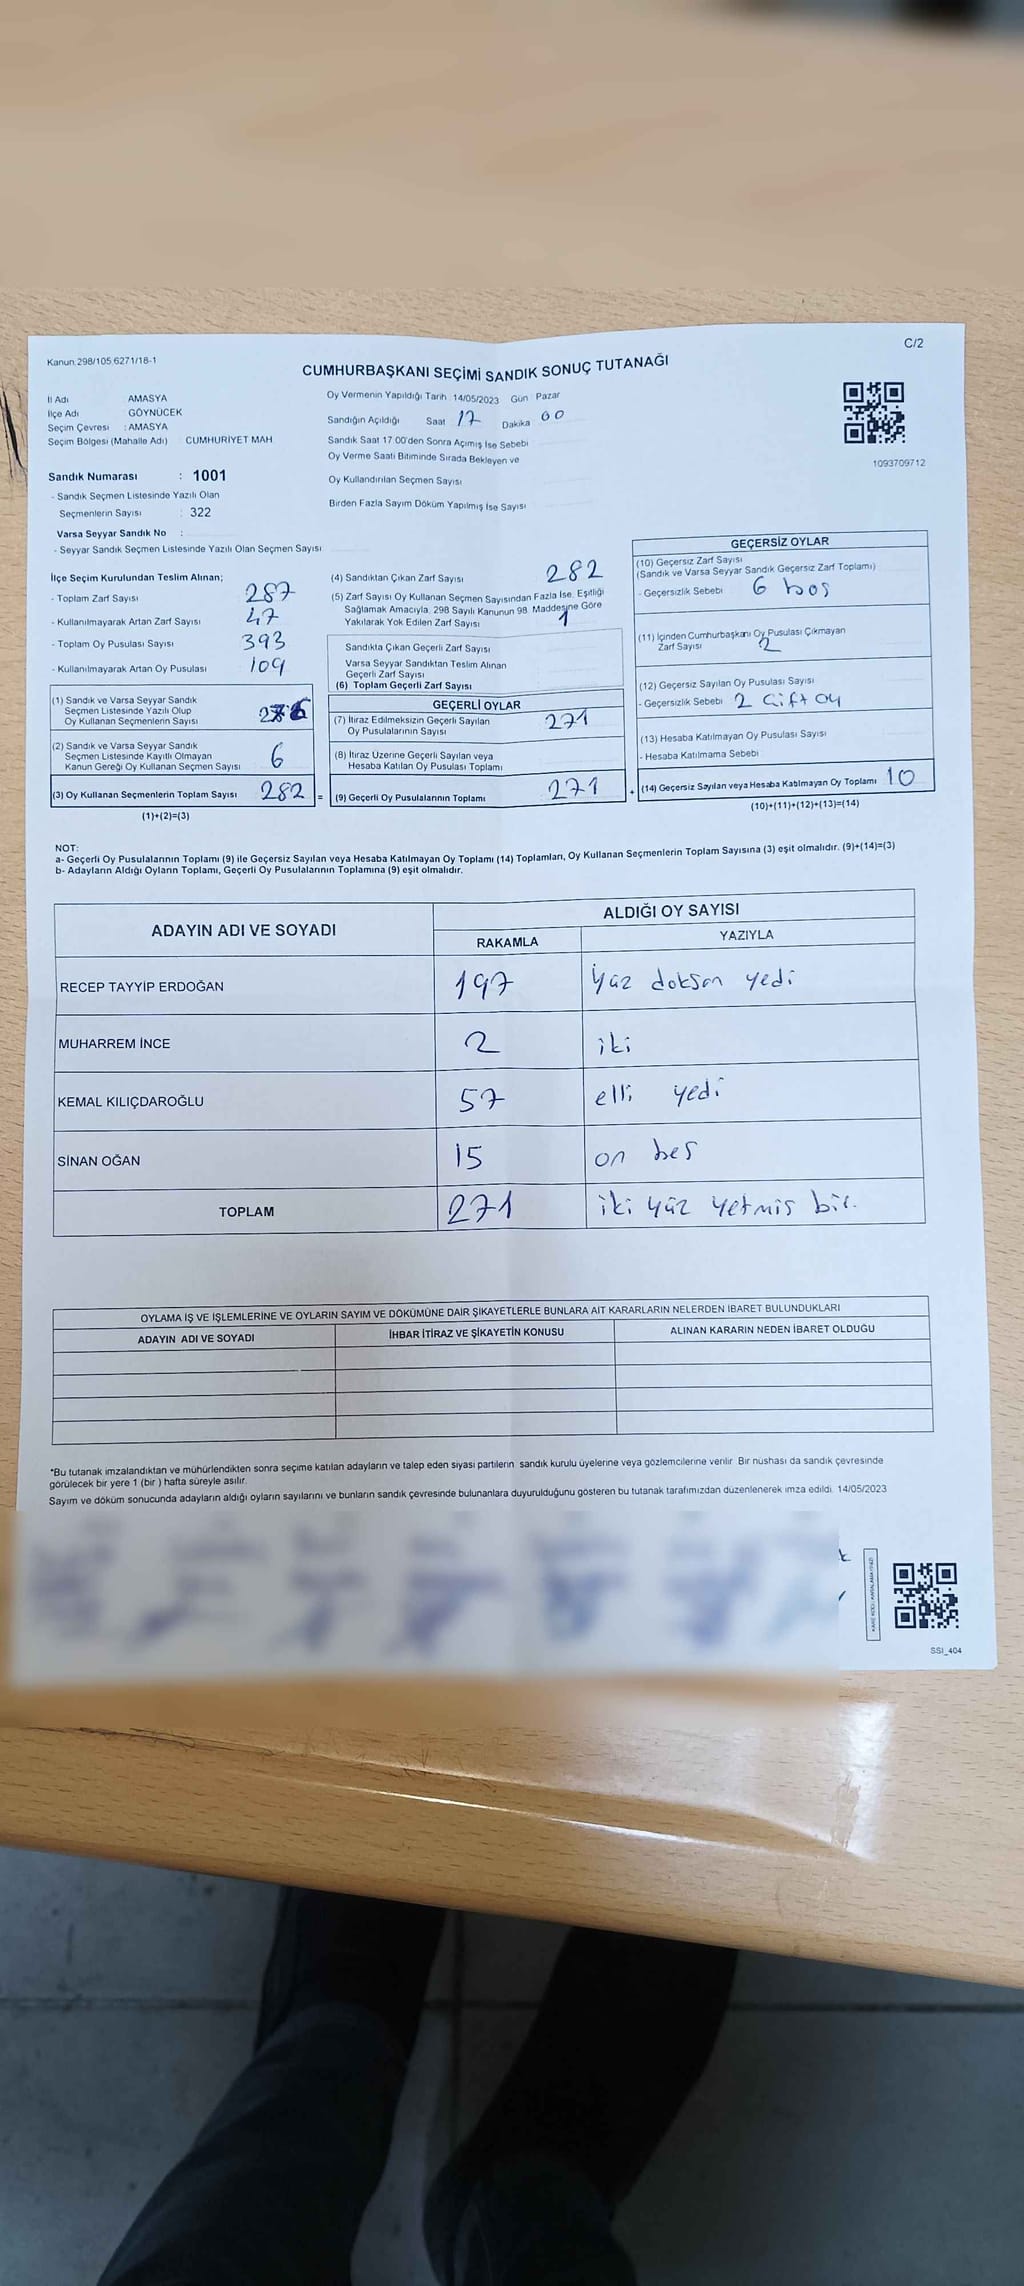 Kanun.298/105,6271/18-1
C/2
CUMHURBAŞKANI SEÇİMİ SANDIK SONUÇ TUTANAĞI
İl Adı AMASYA
İlçe Adı GÖYNÜCEK
Seçim Çevresi : AMASYA
Seçim Bölgesi (Mahalle Adı) CUMHURİYET MAH
Sandık Numarası : 1001
- Sandık Seçmen Listesinde Yazılı Olan
Seçmenlerin Sayısı : 322
Varsa Seyyar Sandık No :
- Seyyar Sandık Seçmen Listesinde Yazılı Olan Seçmen Sayısı
Oy Vermenin Yapıldığı Tarih 14/05/2023 Gün Pazar
Sandığın Açıldığı Saat 17 Dakika 00
Sandık Saat 17.00'den Sonra Açımış İse Sebebi
Oy Verme Saati Bitiminde Sırada Bekleyen ve
Oy Kullandırılan Seçmen Sayısı
Birden Fazla Sayım Döküm Yapılmış İse Sayısı
1093709712
İlçe Seçim Kurulundan Teslim Alınan;
- Toplam Zarf Sayısı 287
- Kullanılmayarak Artan Zarf Sayısı 47
- Toplam Oy Pusulası Sayısı 393
- Kullanılmayarak Artan Oy Pusulası 109
(1) Sandık ve Varsa Seyyar Sandık
Seçmen Listesinde Yazılı Olup
Oy Kullanan Seçmenlerin Sayısı
(2) Sandık ve Varsa Seyyar Sandık
Seçmen Listesinde Kayıtlı Olmayan
Kanun Gereği Oy Kullanan Seçmen Sayısı 6
(3) Oy Kullanan Seçmenlerin Toplam Sayısı 282 =
(1)+(2)=(3)
(4) Sandıktan Çıkan Zarf Sayısı 282
(5) Zarf Sayısı Oy Kullanan Seçmen Sayısından Fazla İse, Eşitliği
Sağlamak Amacıyla, 298 Sayılı Kanunun 98. Maddesine Göre
Yakılarak Yok Edilen Zarf Sayısı 1
Sandıkta Çıkan Geçerli Zarf Sayısı
Varsa Seyyar Sandıktan Teslim Alınan
Geçerli Zarf Sayısı
(6) Toplam Geçerli Zarf Sayısı
GEÇERLİ OYLAR
(7) İtiraz Edilmeksizin Geçerli Sayılan
Oy Pusulalarının Sayısı 271
(8) İtiraz Üzerine Geçerli Sayılan veya
Hesaba Katılan Oy Pusulası Toplamı
(9) Geçerli Oy Pusulalarının Toplamı 271 +
GEÇERSİZ OYLAR
(10) Geçersiz Zarf Sayısı
(Sandık ve Varsa Seyyar Sandık Geçersiz Zarf Toplamı)
- Geçersizlik Sebebi 6 boş
(11) İçinden Cumhurbaşkanı Oy Pusulası Çıkmayan
Zarf Sayısı 2
(12) Geçersiz Sayılan Oy Pusulası Sayısı
- Geçersizlik Sebebi 2 Çift oy
(13) Hesaba Katılmayan Oy Pusulası Sayısı
- Hesaba Katılmama Sebebi
(14) Geçersiz Sayılan veya Hesaba Katılmayan Oy Toplamı 10
(10)+(11)+(12)+(13)=(14)
NOT:
a- Geçerli Oy Pusulalarının Toplamı (9) ile Geçersiz Sayılan veya Hesaba Katılmayan Oy Toplamı (14) Toplamları, Oy Kullanan Seçmenlerin Toplam Sayısına (3) eşit olmalıdır. (9)+(14)=(3)
b- Adayların Aldığı Oyların Toplamı, Geçerli Oy Pusulalarının Toplamına (9) eşit olmalıdır.
ADAYIN ADI VE SOYADI
ALDIĞI OY SAYISI
RAKAMLA YAZIYLA
RECEP TAYYİP ERDOĞAN 197 Yüz doksan yedi
MUHARREM İNCE 2 iki
KEMAL KILIÇDAROĞLU 57 elli yedi
SİNAN OĞAN 15 on beş
TOPLAM 271 iki yüz yetmiş bir.
OYLAMA İŞ VE İŞLEMLERİNE VE OYLARIN SAYIM VE DÖKÜMÜNE DAİR ŞİKAYETLERLE BUNLARA AİT KARARLARIN NELERDEN İBARET BULUNDUKLARI
ADAYIN ADI VE SOYADI İHBAR İTİRAZ VE ŞİKAYETİN KONUSU ALINAN KARARIN NEDEN İBARET OLDUĞU
*Bu tutanak imzalandıktan ve mühürlendikten sonra seçime katılan adayların ve talep eden siyasi partilerin sandık kurulu üyelerine veya gözlemcilerine verilir. Bir nüshası da sandık çevresinde
görülecek bir yere 1 (bir ) hafta süreyle asılır.
Sayım ve döküm sonucunda adayların aldığı oyların sayılarını ve bunların sandık çevresinde bulunanlara duyurulduğunu gösteren bu tutanak tarafımızdan düzenlenerek imza edildi. 14/05/2023
SSI_404